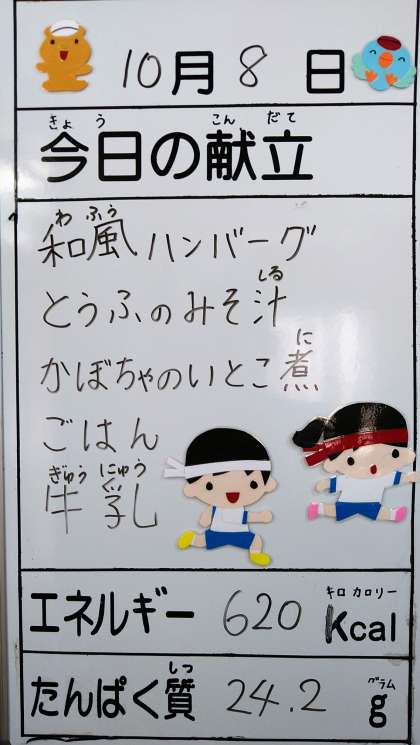 10月8日
きょう こんだて
今日の献立
わふう
和風ハンバーグ
しる
とうふのみそ汁
に
かぼちゃのいとこ煮
ごはん
ぎゅうにゅう
牛乳
キロカロリー
エネルギー 620 Kcal
しつ グラム
たんぱく質 24.2 g